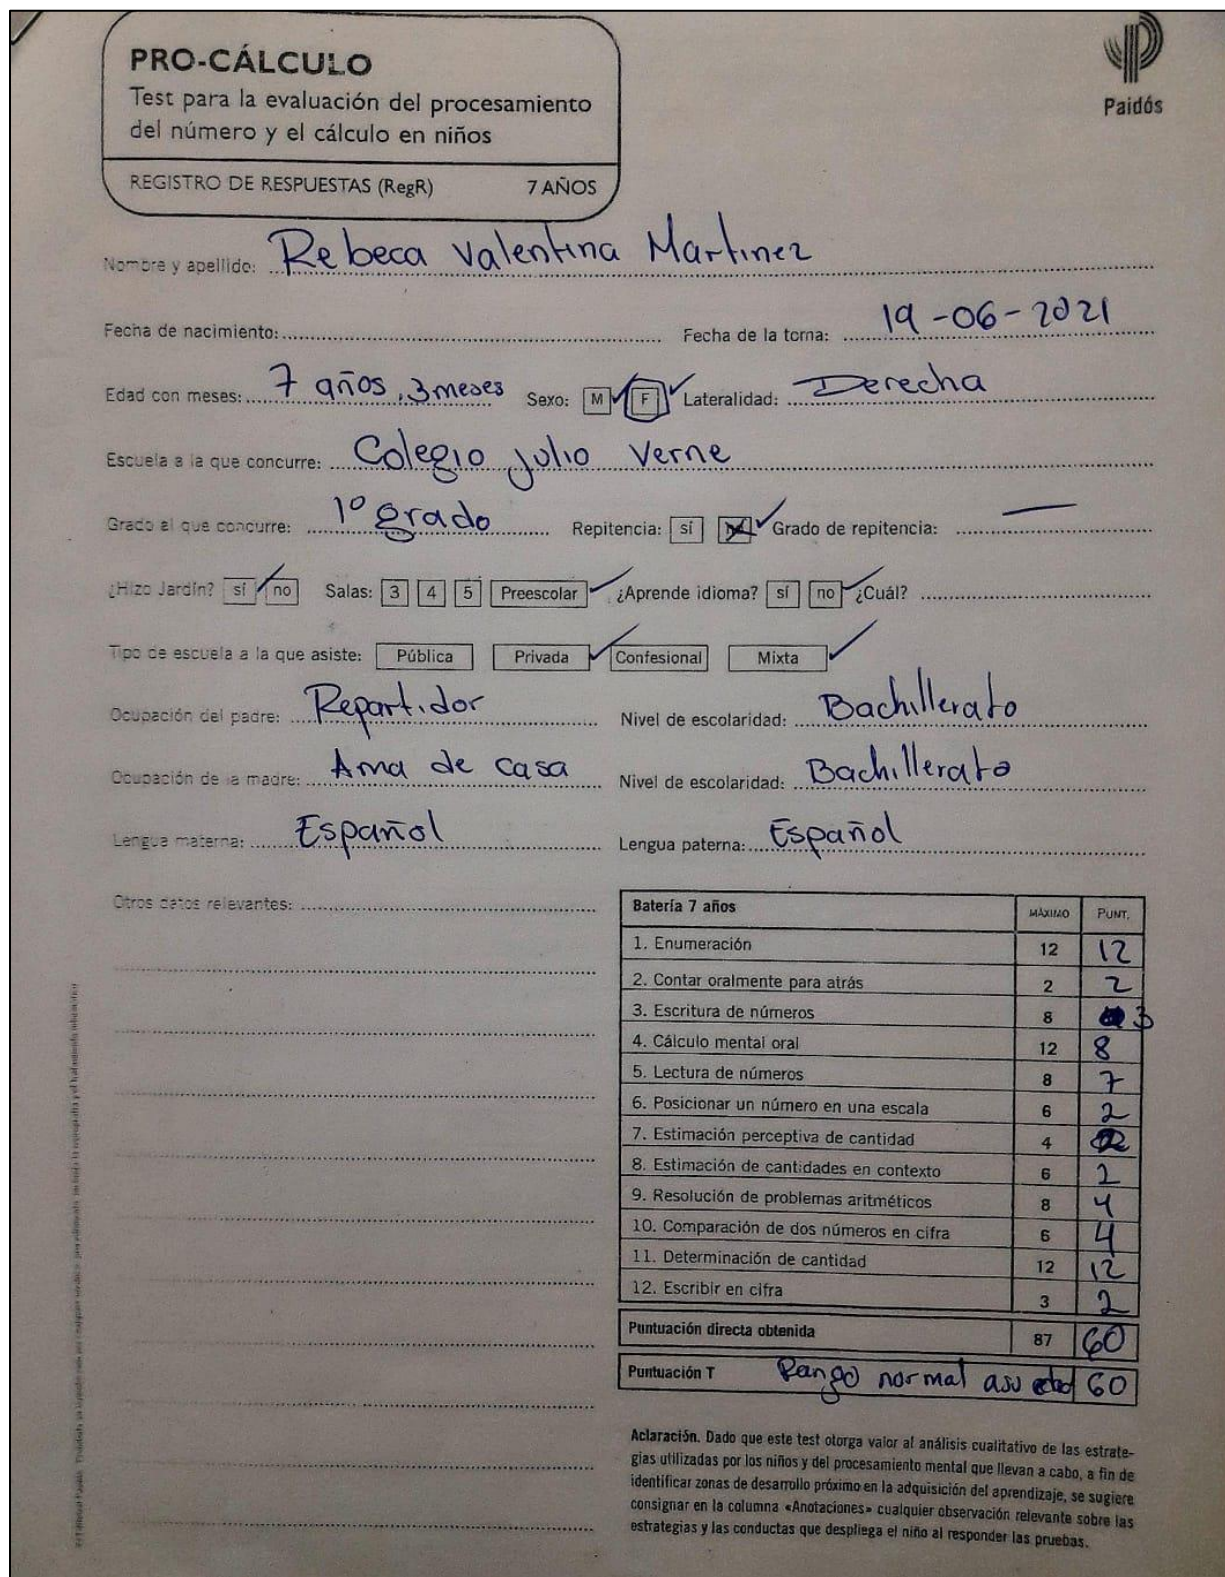 PRO-CÁLCULO
Test para la evaluación del procesamiento
del número y el cálculo en niños
REGISTRO DE RESPUESTAS (RegR) 7 AÑOS
Paidós
Nombre y apellido: Rebeca Valentina Martinez
Fecha de nacimiento: Fecha de la toma: 19-06-2021
Edad con meses: 7 años, 3 meses Sexo: M F Lateralidad: Derecha
Escuela a la que concurre: Colegio Julio Verne
Grado al que concurre: 1º grado Repitencia: sí no Grado de repitencia: —
¿Hizo Jardín? sí no Salas: 3 4 5 Preescolar ¿Aprende idioma? sí no ¿Cuál?
Tipo de escuela a la que asiste: Pública Privada Confesional Mixta
Ocupación del padre: Repartidor Nivel de escolaridad: Bachillerato
Ocupación de la madre: Ama de casa Nivel de escolaridad: Bachillerato
Lengua materna: Español Lengua paterna: Español
Otros datos relevantes:
Batería 7 años MÁXIMO PUNT.
1. Enumeración 12 12
2. Contar oralmente para atrás 2 2
3. Escritura de números 8 3
4. Cálculo mental oral 12 8
5. Lectura de números 8 7
6. Posicionar un número en una escala 6 2
7. Estimación perceptiva de cantidad 4 2
8. Estimación de cantidades en contexto 6 2
9. Resolución de problemas aritméticos 8 4
10. Comparación de dos números en cifra 6 4
11. Determinación de cantidad 12 12
12. Escribir en cifra 3 2
Puntuación directa obtenida 87 60
Puntuación T Rango normal a su edad 60
Aclaración. Dado que este test otorga valor al análisis cualitativo de las estrate-
gias utilizadas por los niños y del procesamiento mental que llevan a cabo, a fin de
identificar zonas de desarrollo próximo en la adquisición del aprendizaje, se sugiere
consignar en la columna «Anotaciones» cualquier observación relevante sobre las
estrategias y las conductas que despliega el niño al responder las pruebas.